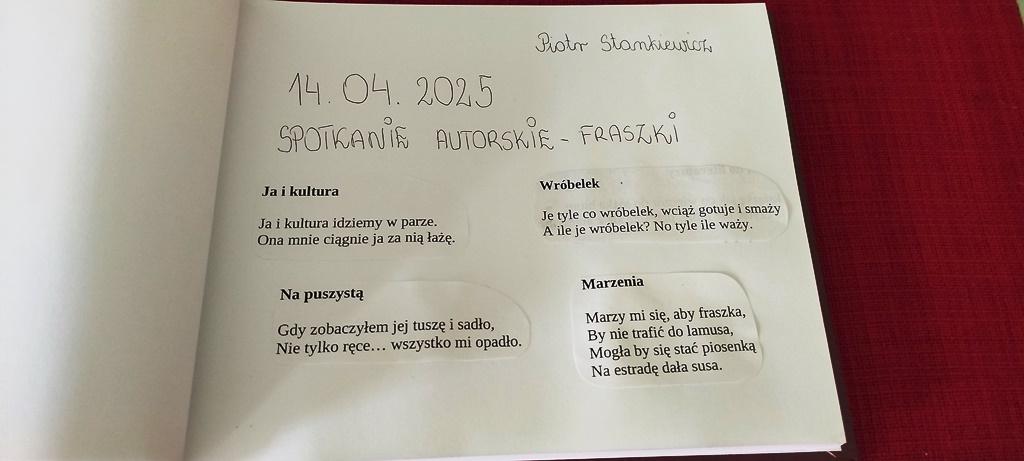 Piotr Stankiewicz
14.04.2025
SPOTKANIE AUTORSKIE - FRASZKI
Ja i kultura
Ja i kultura idziemy w parze.
Ona mnie ciągnie ja za nią łażę.
Wróbelek
Je tyle co wróbelek, wciąż gotuje i smaży
A ile je wróbelek? No tyle ile waży.
Na puszystą
Gdy zobaczyłem jej tuszę i sadło,
Nie tylko ręce… wszystko mi opadło.
Marzenia
Marzy mi się, aby fraszka,
By nie trafić do lamusa,
Mogła by się stać piosenką
Na estradę dała susa.